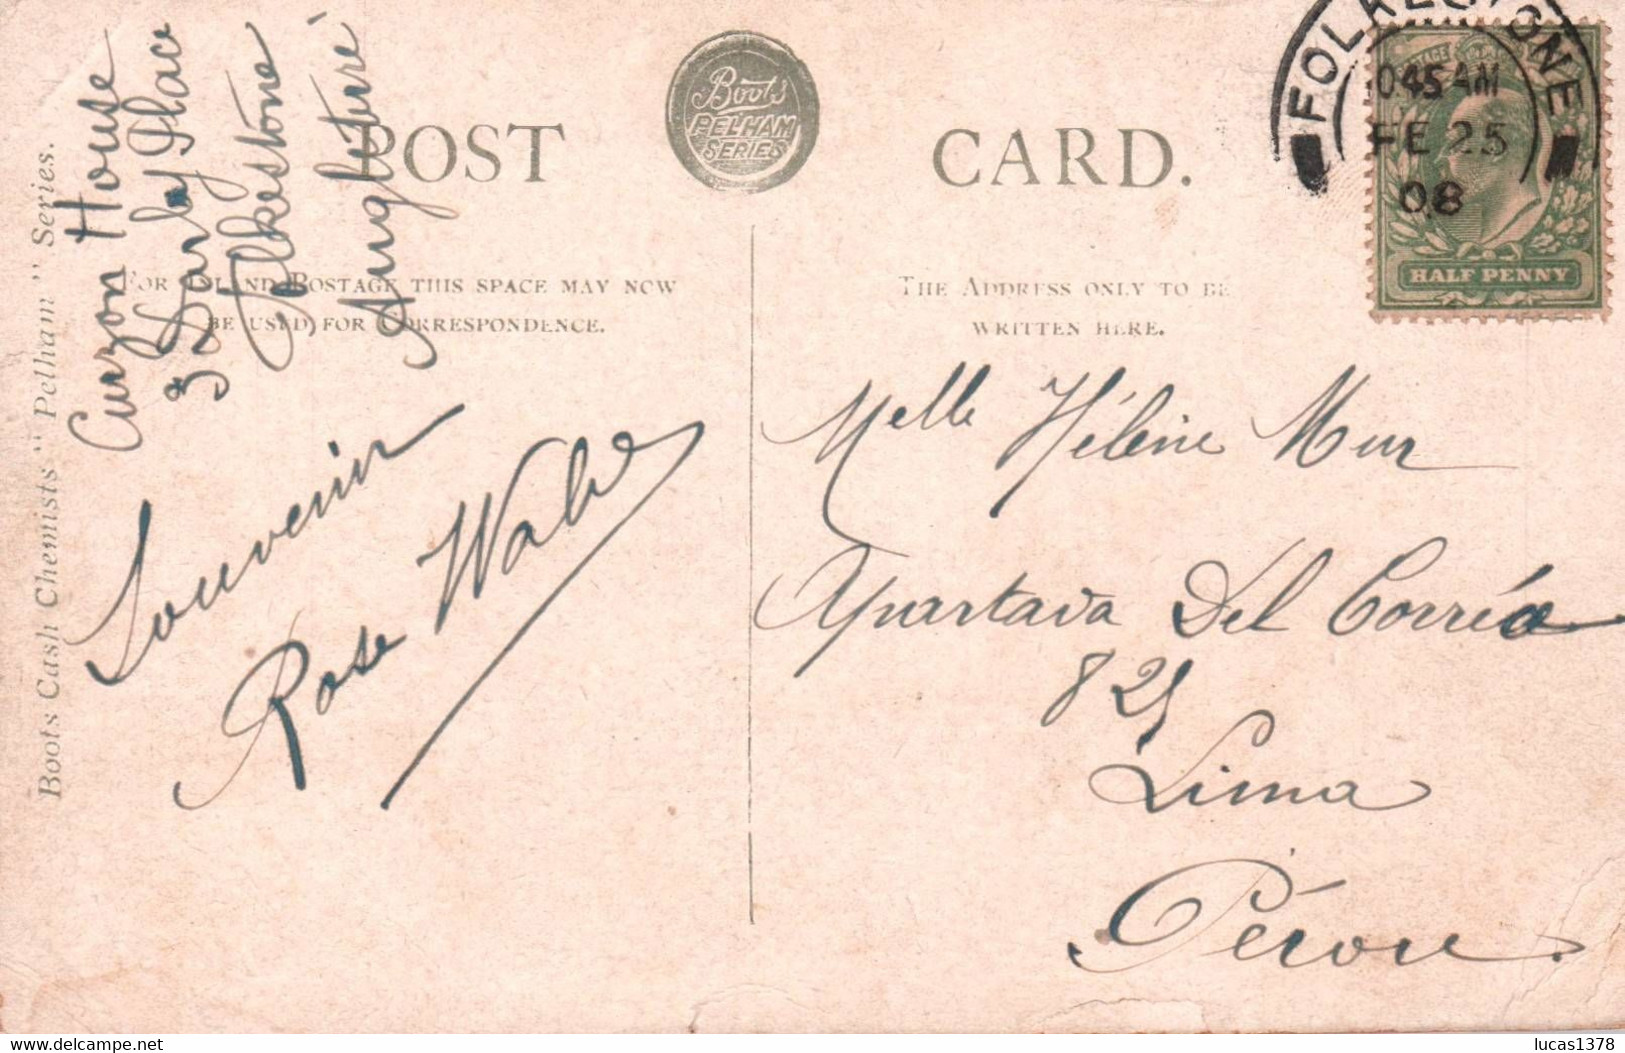 Curzon House
3 Darby Place
Folkestone
Angleterre
POST
Boots
PELHAM
SERIES
CARD.
FOLKESTONE
10 45 AM
FE 25
08
HALF PENNY
FOR INLAND POSTAGE THIS SPACE MAY NOW
BE USED FOR CORRESPONDENCE.
THE ADDRESS ONLY TO BE
WRITTEN HERE.
Boots Cash Chemists "Pelham" Series.
Souvenir
Rose
Melle Hélène Mur
Apartada Del Corréo
821
Lima
Pérou.
lucas1378